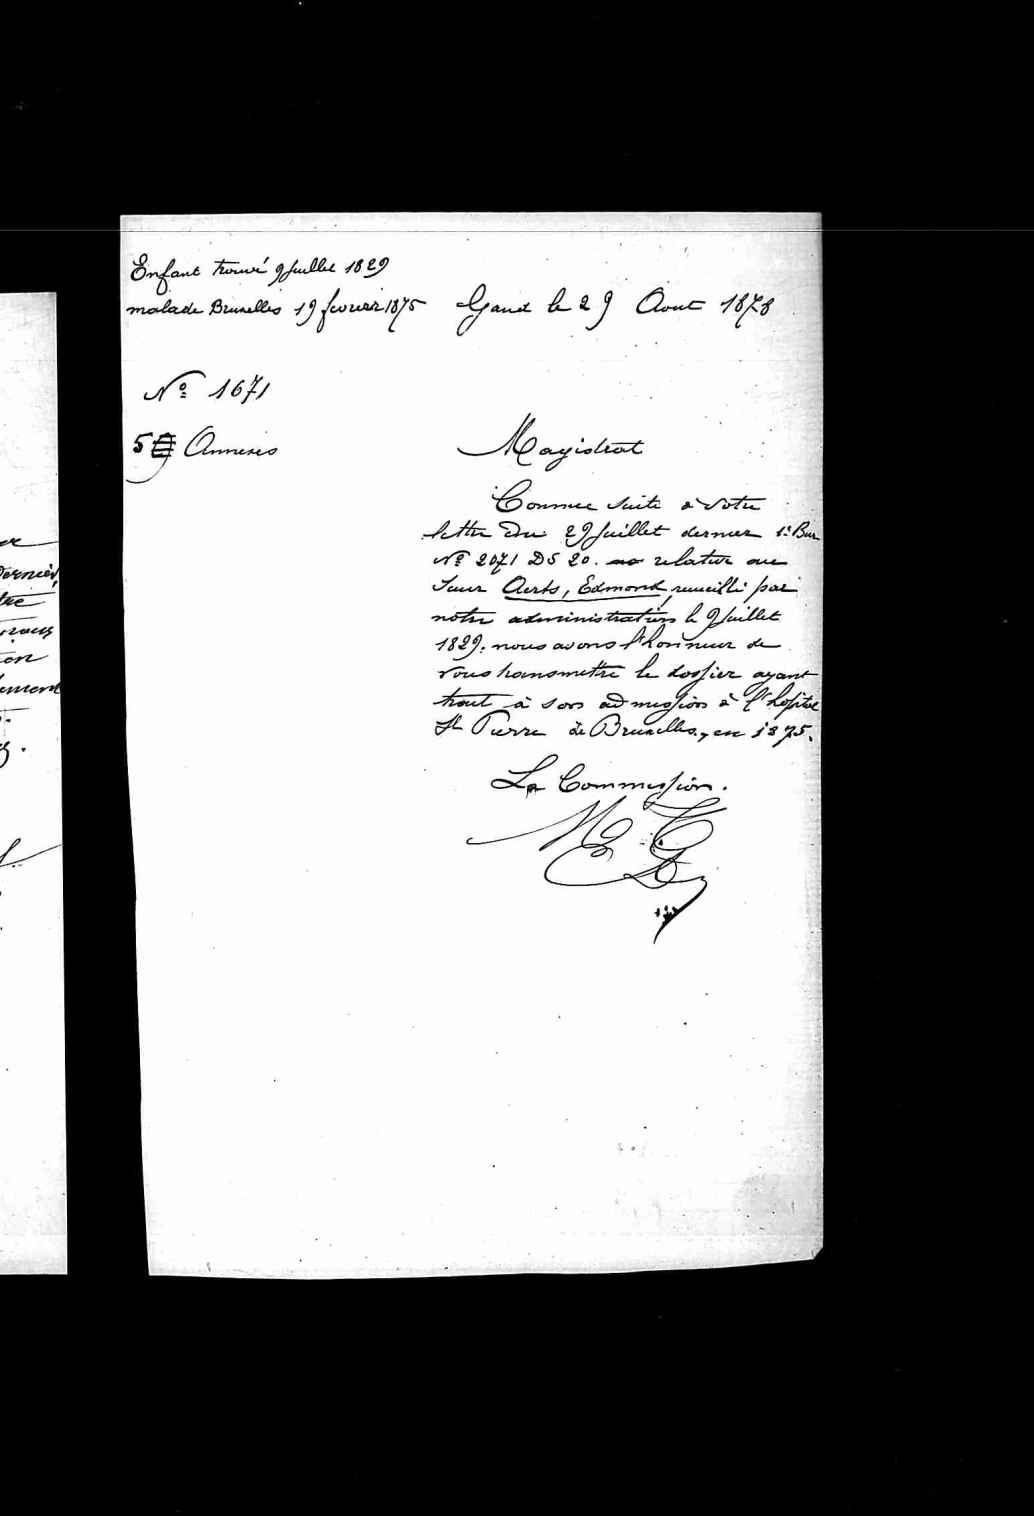 Enfant trouvé 9 Juillet 1829
malade Bruxelles 19 fevrier 1875
Gand le 29 Aout 1878
Nº 1671
5 Annexes
Magistrat
Comme suite à votre
lettre du 29 Juillet dernier 1e Bur
Nº 2071 DS 20. relative au
Sieur Aerts, Edmond, recueilli par
notre administration le 9 Juillet
1829. nous avons l'honneur de
vous transmettre le dossier ayant
trait à son admission à l'hopital
St Pierre de Bruxelles, en 1875.
La Commission.
dernier,